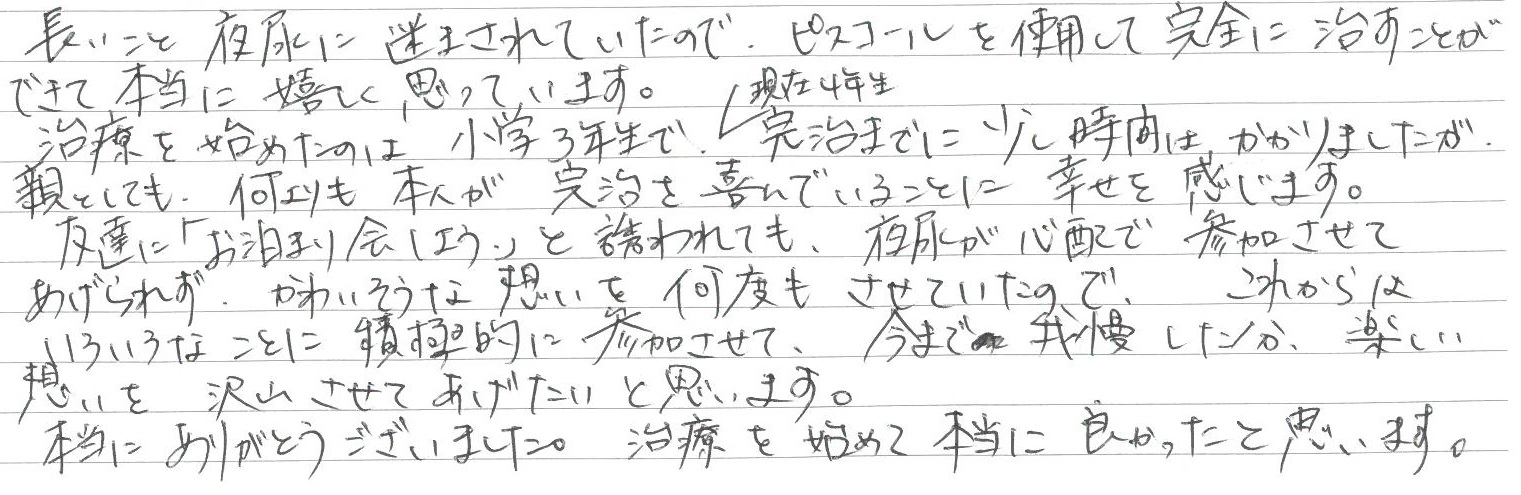 長いこと夜尿に迷まされていたので、ピスコールを使用して完全に治すことが
できて本当に嬉しく思っています。
現在4年生
治療を始めたのは小学3年生で、完治までに少し時間はかかりましたが、
親としても、何よりも本人が完治を喜んでいることに幸せを感じます。
友達に「お泊まり会しよう」と誘われても、夜尿が心配で参加させて
あげられず、かわいそうな想いを何度もさせていたので、これからは
いろいろなことに積極的に参加させて、今まで我慢した分、楽しい
想いを沢山させてあげたいと思います。
本当にありがとうございました。治療を始めて本当に良かったと思います。